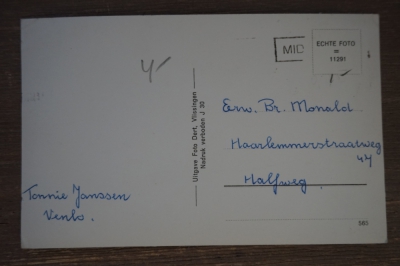 4-
MID
ECHTE FOTO
11281
Uitgave Foto Dert, Vlissingen
Nadruk verboden J 30
Erw. Br. Monald
Haarlemmerstraatweg
47
Halfweg
Tonnie Janssen
Venlo.